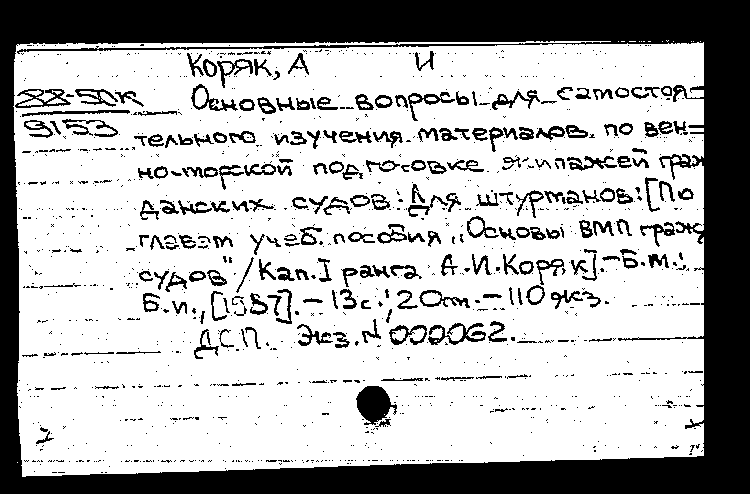 Коряк, А И
88-50к Основные вопросы для самостоя=
9153 тельного изучения материалов по вен=
но-морской подготовке экипажей граж
данских судов: Для штурманов: [По
главам учеб. пособия „Основы ВМП гражд
судов" / Кап. I ранга А.И.Коряк]. - Б.м.;
Б.и., [1987]. - 13с.; 20см. - 110 экз.
ДСП. Экз. N 000062.